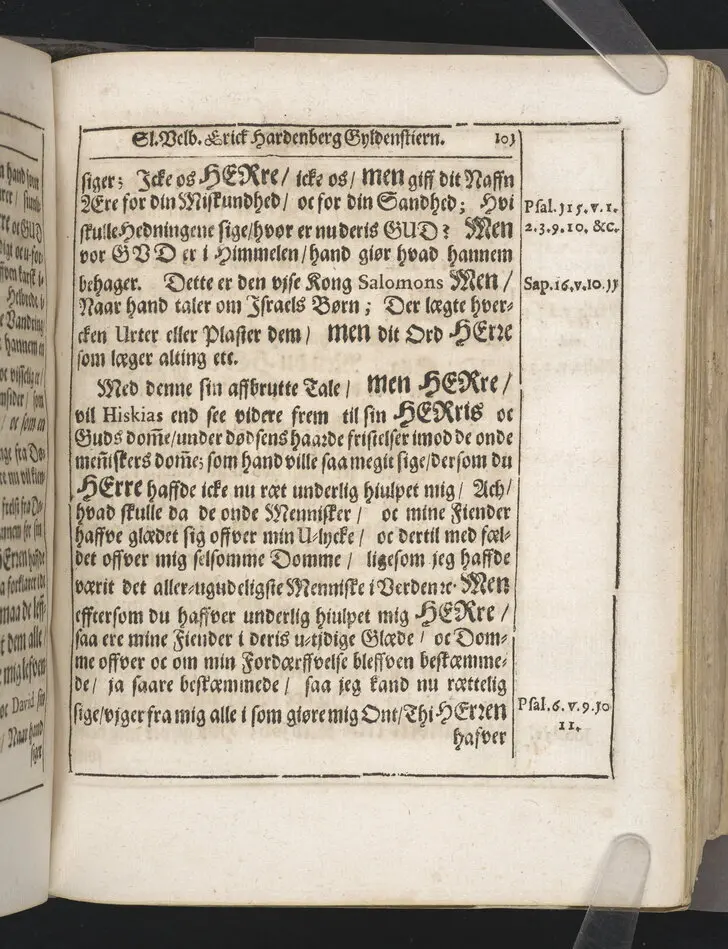 Sl. Velb. Erick Hardenberg Gyldenstiern. 103
siger; Icke os HERre/ icke os/ men giff dit Naffn
Ære for din Miskundhed/ oc for din Sandhed; Hvi
skulle Hedningene sige/hvor er nu deris GUD? Men
vor GVD er i Himmelen/hand giør hvad hannem
behager. Dette er den vjse Kong Salomons Men/
Naar hand taler om Jsraels Børn; Der lægte hver-
cken Urter eller Plaster dem/ men dit Ord HErre
som læger alting etc.
Med denne sin affbrutte Tale/ men HERre/
vil Hiskias end see videre frem til sin HERris oc
Guds dom̃e/under dødsens haarde fristelser imod de onde
men̄iskers dom̃e; som hand ville saa megit sige/dersom du
HErre haffde icke nu ræt underlig hiulpet mig/ Ach/
hvad skulle da de onde Mennisker/ oc mine Fiender
haffve glædet sig offver min U-lycke/ oc dertil med fæl-
det offver mig selsomme Domme/ ligesom jeg haffde
værit det aller-ugudeligste Menniske i Verden ꝛc. Men
efftersom du haffver underlig hiulpet mig HERre/
saa ere mine Fiender i deris u-tjdige Glæde/ oc Dom-
me offver oc om min Fordærffvelse bleffven beskæmme-
de/ ja saare beskæmmede/ saa jeg kand nu rættelig
sige/vjger fra mig alle i som giøre mig Ont/Thi HErren
hafver
Psal. 115. v. 1.
2. 3. 9. 10. &c.
Sap. 16. v. 10. 11
Psal. 6. v. 9. 10
11.